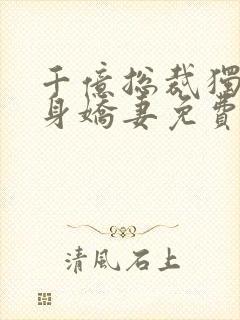 千億總裁獨
身嬌妻免費
清風石上